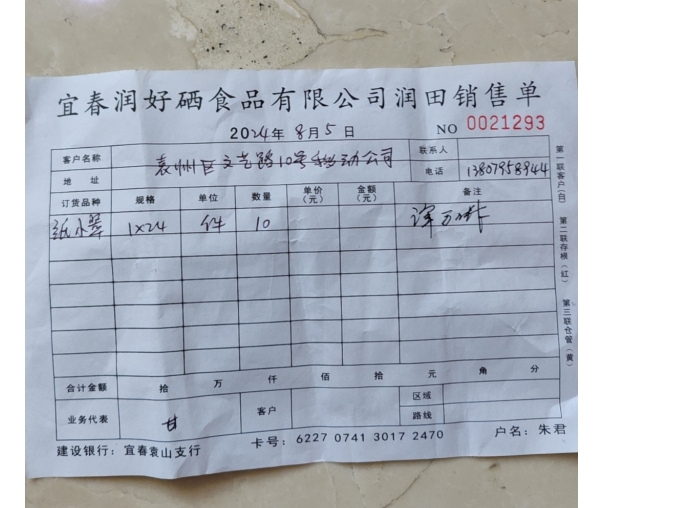 宜春润好硒食品有限公司润田销售单
2024年 8月5日 NO 0021293
客户名称 联系人
地 址 袁州区文艺路10号移动公司 电话 13807958944
订货品种 规格 单位 数量 单价(元) 金额(元) 备注
纸小翠 1×24 件 10
合计金额 拾 万 仟 佰 拾 元 角 分
业务代表 甘 客户 区域
路线
建设银行：宜春袁山支行 卡号：6227 0741 3017 2470 户名：朱君
第一联客户(白) 第二联存根(红) 第三联仓管(黄)